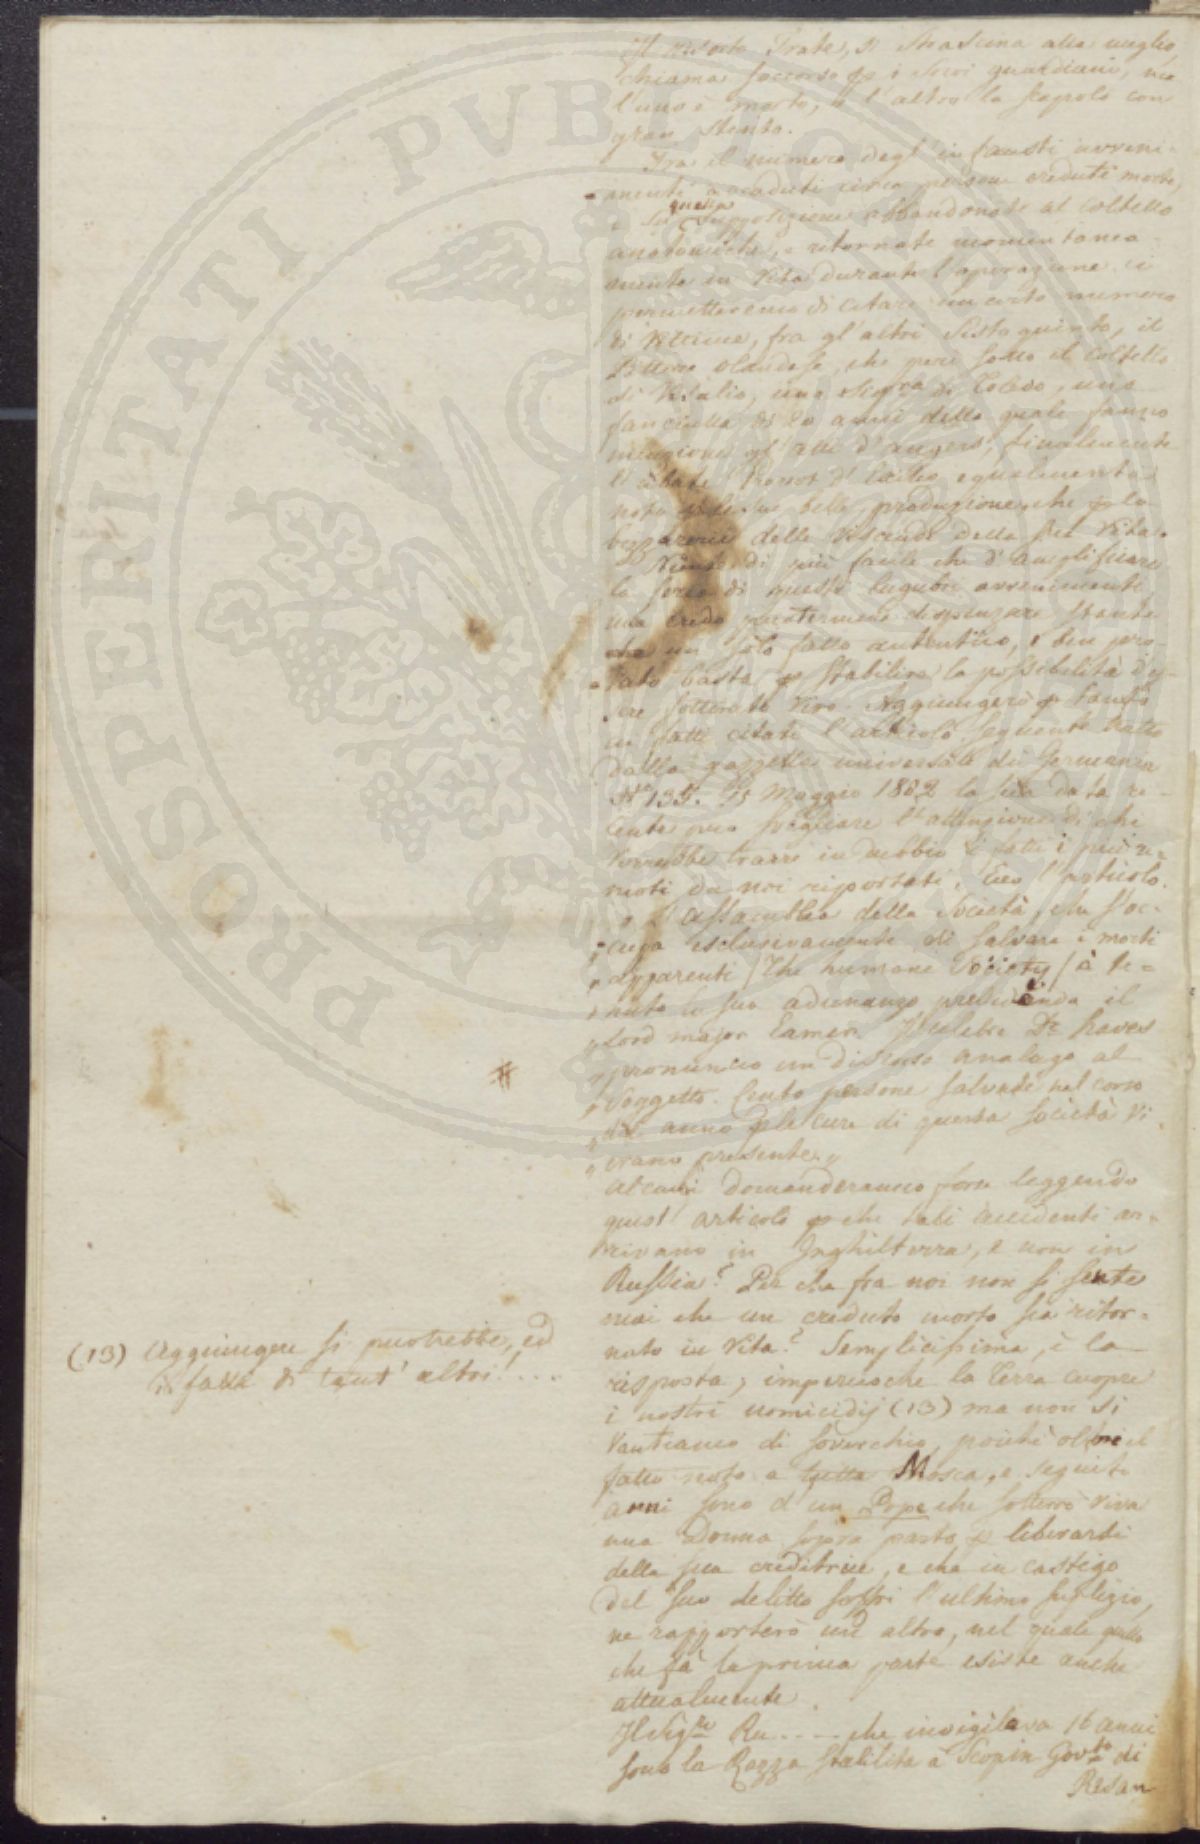 Il risorto Frate, si strascina alla meglio
chiama soccorso p i suoi guardiani, ma
l'uno è morto, e l'altro la scapolò con
gran stento.
Fra il numero degl'infausti avveni-
menti accaduti circa persone credute morte,
e su questa supposizione abbandonate al coltello
anatomiche, e ritornate momentanea-
mente in Vita durante l'operazione, ci
permetteremo di citare un certo numero
di Vittime, fra gl'altri Sisto quinto, il
olandese, che perì sotto il coltello
di Vesalio, una Sigra di Toledo, una
fanciulla di 20 anni della quale fanno
menzione gl'atti d'angers, finalmente
l'abate Prevot d'Exiles egualmente
noto p le sue belle produzione, che p la
bizzarerie delle Vicende della sua Vita.
Niente di più facile che d'amplificare
la serie di questi lugubri avvenimenti
ma credo potermene dispenzare stante
che un solo fatto autentico, e ben pro-
vato basta p stabilire la possibilità d'es-
sere sotterrato Vivo. Aggiungerò p tanto
ai fatti citati l'articolo seguente tratto
dalla gazzetta universale di Germania
N° 135. 15 Maggio 1802 la sua data re-
cente può svegliare l'attenzione di chi
Vorrebbe trarre in dubbio i fatti i più re-
moti da noi riportati. Ecco l'articolo.
" L'assemblea della Società, che s'oc-
" cupa esclusivamente di salvare i morti
" apparenti / The humane Society / à te-
" nuto la sua adunanza presiedendo il
" Lord major Eamer. Il celebre Dr. haves
" pronunciò un discorso analogo al
" Soggetto. Cento persone salvate nel corso
" del anno p le cure di questa società vi
" erano presente. "
Alcuni domanderanno forse leggendo
quest'articolo p che tali accidenti ar-
rivano in Inghilterra, e non in
Russia? Per che fra noi non si sente
mai che un creduto morto sia ritor-
nato in Vita? Semplicissima, è la
risposta, imperocche la Terra cuopre
i nostri uomicidij (13) ma non si
Vantiamo di soverchio, poichè oltre il
fatto noto a tutta Mosca, e seguito
anni sono d'un Pope che sotterrò viva
una Donna sopra parto p liberarsi
della sua creditrice, e che in castigo
del suo delitto soffrì l'ultimo suplizio,
ne rapporterò un altro, nel quale quello
che fà la prima parte esiste anche
attualmente.
Il Sigre Ru---- che invigilava 16 anni
sono la Razza stabilita à Scopin Govto di
Resan
#
(13) Aggiungere si puotrebbe, ed
i falli di tant'altri!....
PROSPERITATI PVBLICAE